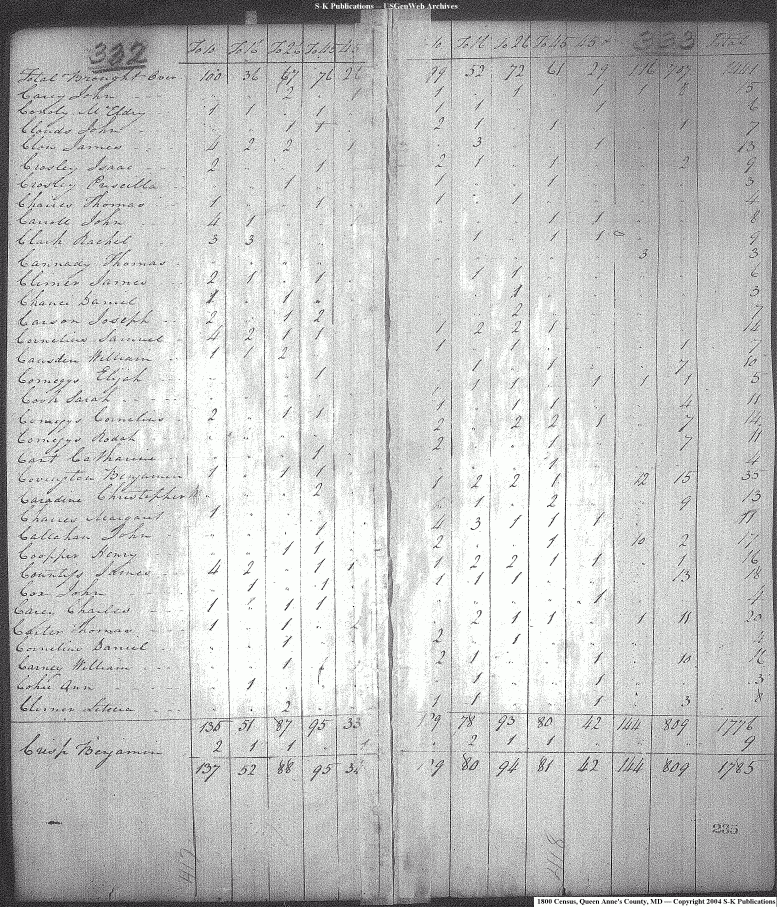 S-K Publications — USGenWeb Archives
332 To 10 To 16 To 26 To 45 45 10 To 16 To 26 To 45 45 333 Total
Total Brought Over 100 36 67 76 26 99 52 72 61 29 116 707
Carey John 2 1 1 1 1 1 8 5
1 1 1 1 1 1 6
Clouds John 1 1 2 1 1 1 7
Clow James 4 2 2 1 3 1 13
Crosley Isaac 2 1 2 1 1 2 9
Crosley Priscilla 1 1 1 3
Chaires Thomas 1 1 1 1 4
Carroll John 4 1 1 1 8
Clark Rachel 3 3 1 1 1 0 9
Cannady Thomas 3 3
Climer James 2 1 1 1 1 6
Chance Daniel 1 1 1 3
Carson Joseph 2 1 2 2 7
Cornelius Samuel 4 2 1 1 1 2 2 1 14
William 1 1 2 1 1 1 7
Comegys Elijah 1 1 1 7 10
Cook Sarah 1 1 1 1 1 5
Comegys Cornelius 2 1 1 1 1 1 4 11
Comegys 2 2 2 1 7 14
Cart Catharine 1 2 1 7 11
Covington Benjamin 1 1 1 1 4
Caradine Christopher 2 1 2 2 1 12 15 35
Chaires Margaret 1 1 2 9 13
Callehan John 1 4 3 1 1 1 11
Coopper Henry 1 1 2 1 10 2 17
Countyss James 4 2 1 1 1 2 2 1 1 1 16
Cox John 1 1 1 1 1 13 18
Carey Charles 1 1 1 1 1 4
Carter Thomas 1 1 2 2 1 1 1 11 20
Cornelius Daniel 1 2 1 4
Carney William 1 2 1 1 10 16
Ann 1 1 1 3
Climer 2 1 1 1 3 8
135 51 87 95 33 78 93 80 42 144 809 1776
Crisp Benjamin 2 1 1 1 2 1 1 9
137 52 88 95 34 80 94 81 42 144 809 1785
235
417 418
1800 Census, Queen Anne's County, MD — Copyright 2004 S-K Publications